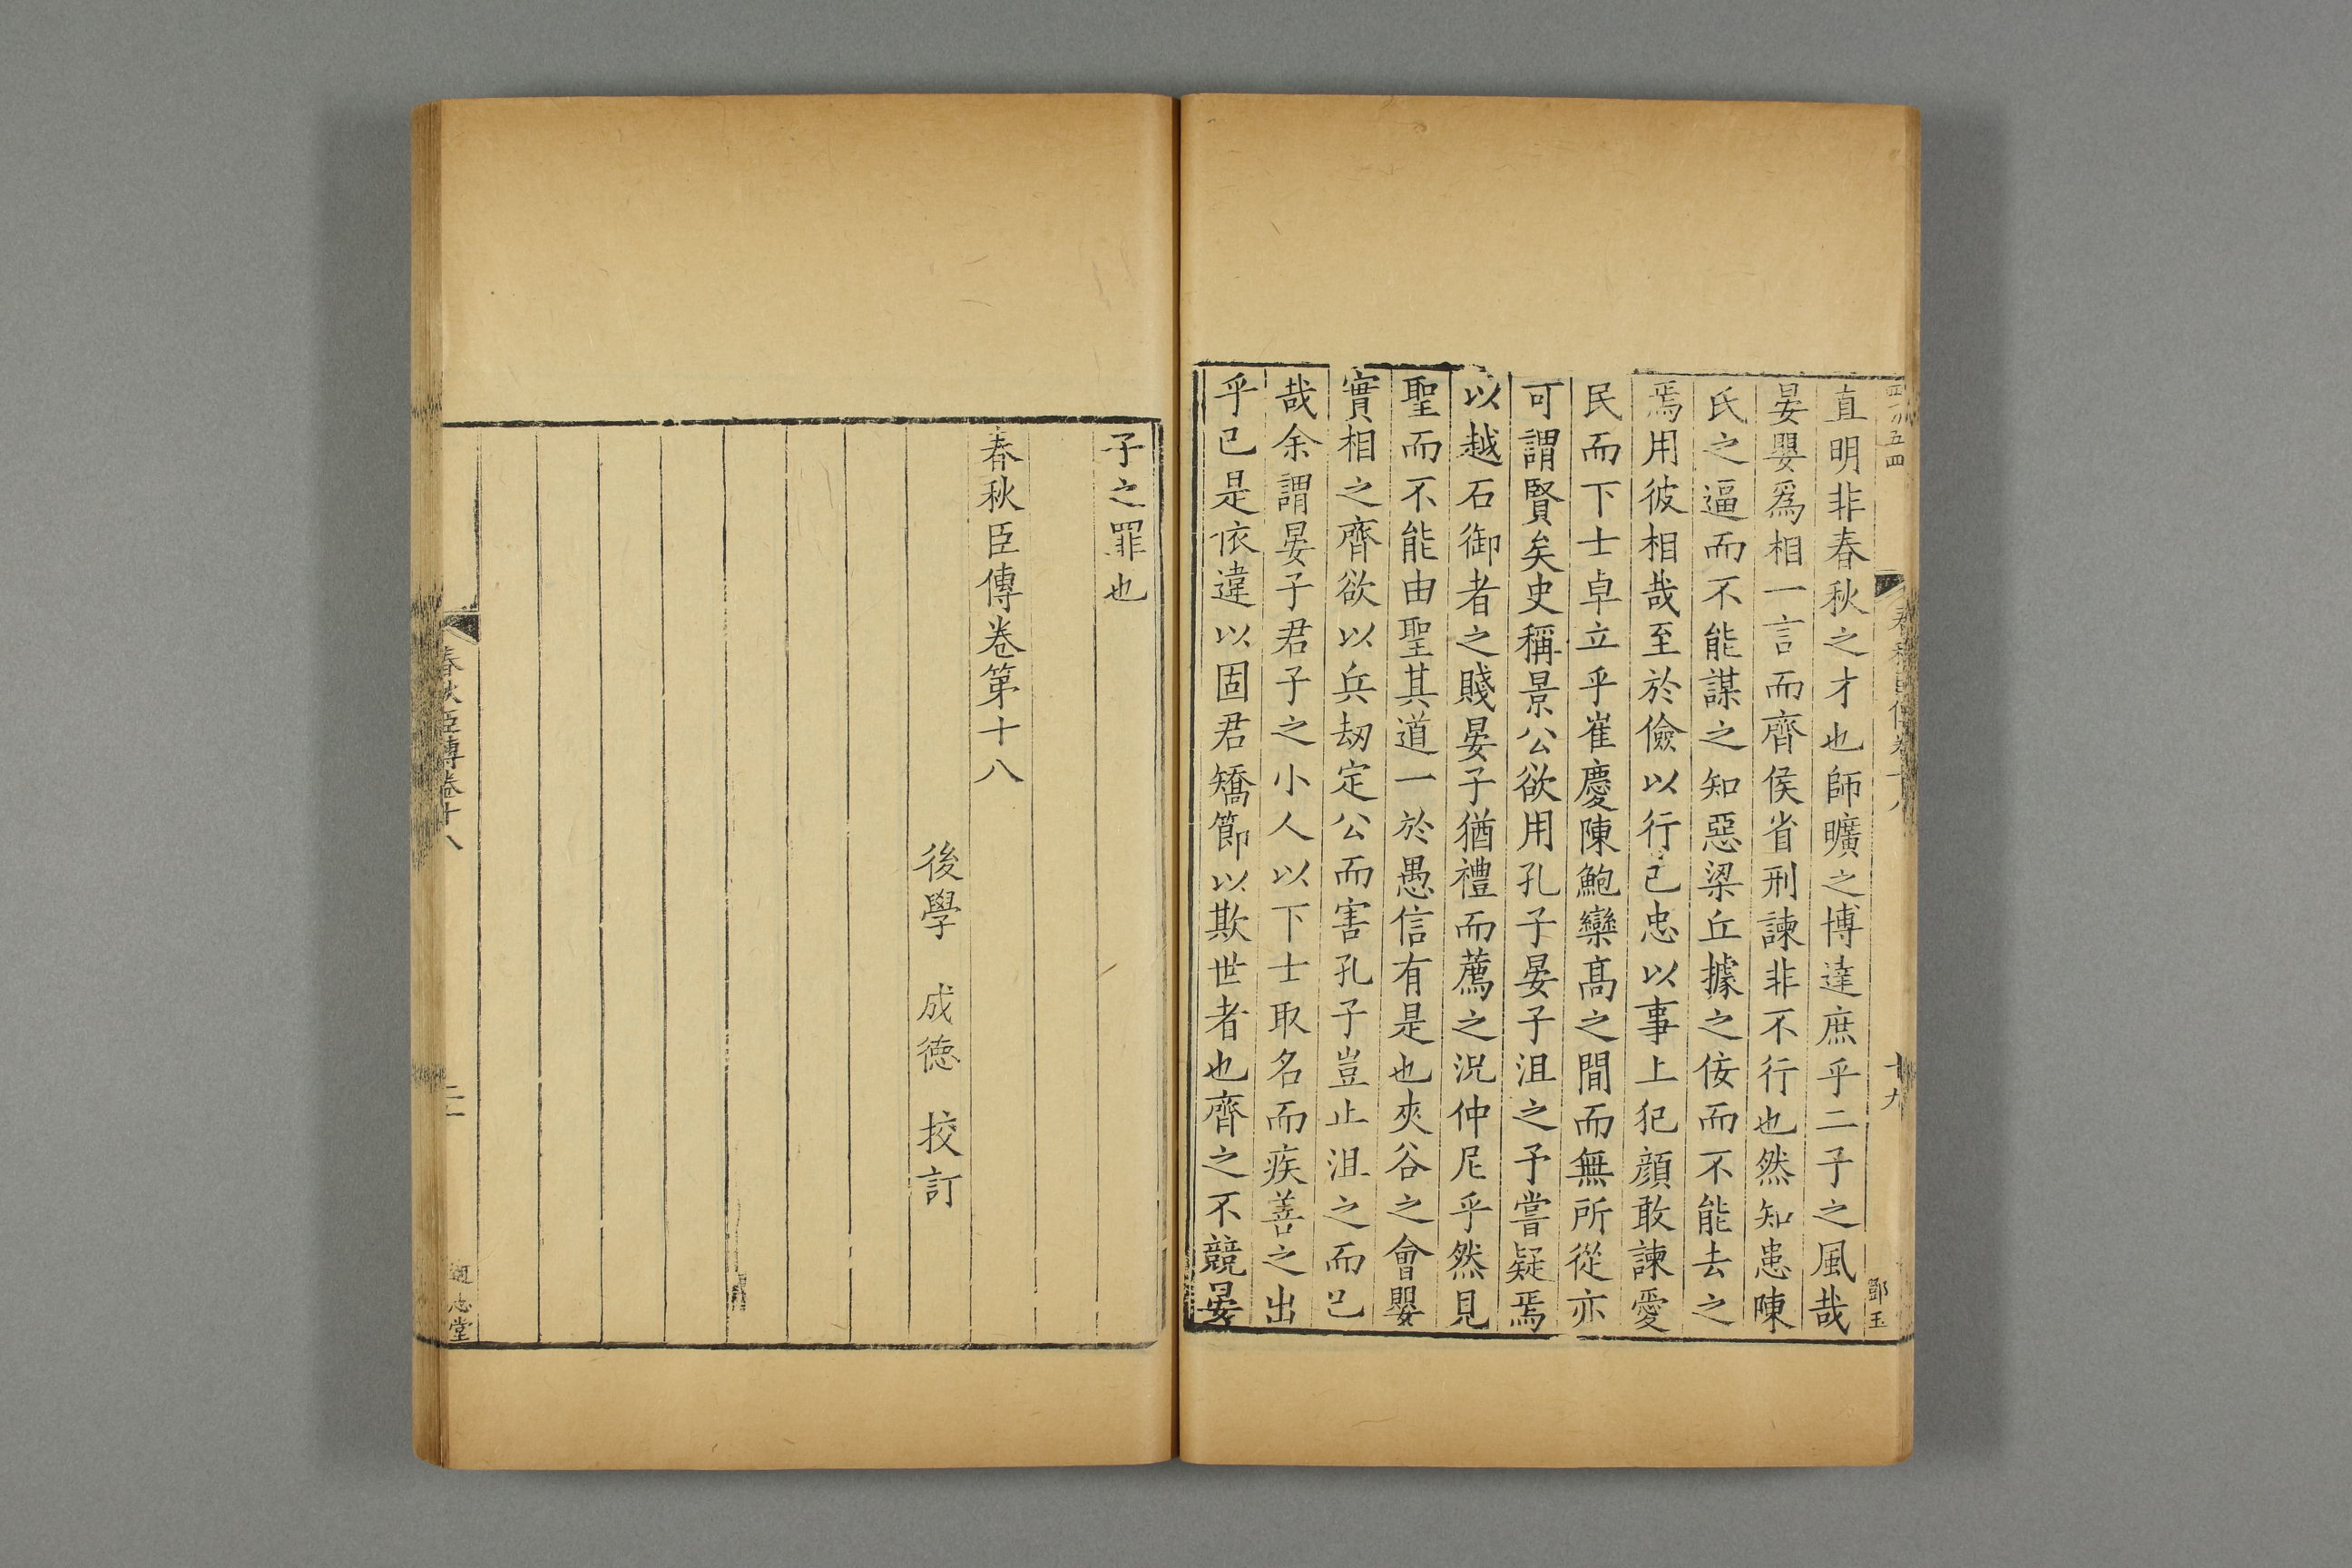 四〻五四
春秋臣傳卷十八
十九
鄧玉
直明非春秋之才也師曠之博達庶乎二子之風哉
晏嬰爲相一言而齊侯省刑諫非不行也然知患陳
氏之逼而不能謀之知惡梁丘據之佞而不能去之
焉用彼相哉至於儉以行己忠以事上犯顔敢諫愛
民而下士卓立乎崔慶陳鮑欒髙之間而無所從亦
可謂賢矣史稱景公欲用孔子晏子沮之予嘗疑焉
以越石御者之賤晏子猶禮而薦之況仲尼乎然見
聖而不能由聖其道一於愚信有是也夾谷之會嬰
實相之齊欲以兵刼定公而害孔子豈止沮之而已
哉余謂晏子君子之小人以下士取名而疾善之出
乎己是依違以固君矯節以欺世者也齊之不競晏
子之罪也
春秋臣傳卷第十八
後學 成德 挍訂
春秋臣傳卷十八
通志堂